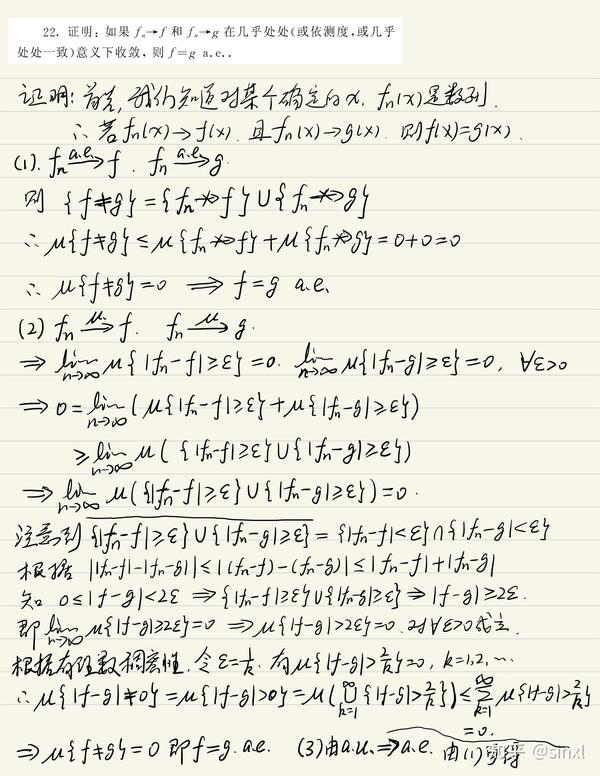 22. 证明：如果 fₙ→f 和 fₙ→g 在几乎处处(或依测度，或几乎
处处一致)意义下收敛，则 f=g a.e..
证明: 首先, 我们知道对某个确定的x, fₙ(x)是数列.
∴ 若fₙ(x)→f(x). 且fₙ(x)→g(x). 则f(x)=g(x).
(1). fₙ —a.e.→ f . fₙ —a.e.→ g.
则 {f≠g} = {fₙ↛f} ∪ {fₙ↛g}
∴ μ{f≠g} ≤ μ{fₙ↛f} + μ{fₙ↛g} = 0+0=0
∴ μ{f≠g}=0 ⟹ f=g a.e.
(2) fₙ —μ→ f. fₙ —μ→ g.
⇒ lim n→∞ μ{|fₙ-f|≥ε}=0. lim n→∞ μ{|fₙ-g|≥ε}=0, ∀ε>0
⇒ 0 = lim n→∞ (μ{|fₙ-f|≥ε}+μ{|fₙ-g|≥ε})
≥ lim n→∞ μ( {|fₙ-f|≥ε}∪{|fₙ-g|≥ε})
⇒ lim n→∞ μ({|fₙ-f|≥ε}∪{|fₙ-g|≥ε})=0.
注意到 {|fₙ-f|≥ε}∪{|fₙ-g|≥ε} = {|fₙ-f|<ε}∩{|fₙ-g|<ε}
根据 ||fₙ-f|-|fₙ-g|| ≤ |(fₙ-f)-(fₙ-g)| ≤ |fₙ-f|+|fₙ-g|
知 0≤|f-g|<2ε ⇒ {|fₙ-f|≥ε}∪{|fₙ-g|≥ε} ⇒ |f-g|≥2ε.
即 lim n→∞ μ{|f-g|≥2ε}=0 ⇒ μ{|f-g|>2ε}=0. 对∀ε>0成立.
根据有理数稠密性, 令ε=1/k. 有μ{|f-g|>2/k}=0, k=1,2,...
∴ μ{|f-g|≠0}=μ{|f-g|>0}=μ(∞∪k=1{|f-g|>2/k})≤∞∑k=1 μ{|f-g|>2/k}
=0.
⇒ μ{f≠g}=0 即f=g. a.e. (3)由a.u.⇒a.e. 由(1)
知乎 @sinxl